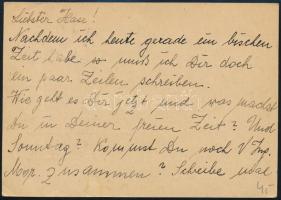 Liebster Hase!
Nachdem ich heute gerade ein bischen
Zeit habe so muß ich Dir doch
ein paar Zeilen schreiben.
Wie geht es Dir jetzt und was machst
Du in Deiner freien Zeit? Und
Sonntag? Kommst Du noch V Ing.
zusammen? Schreibe